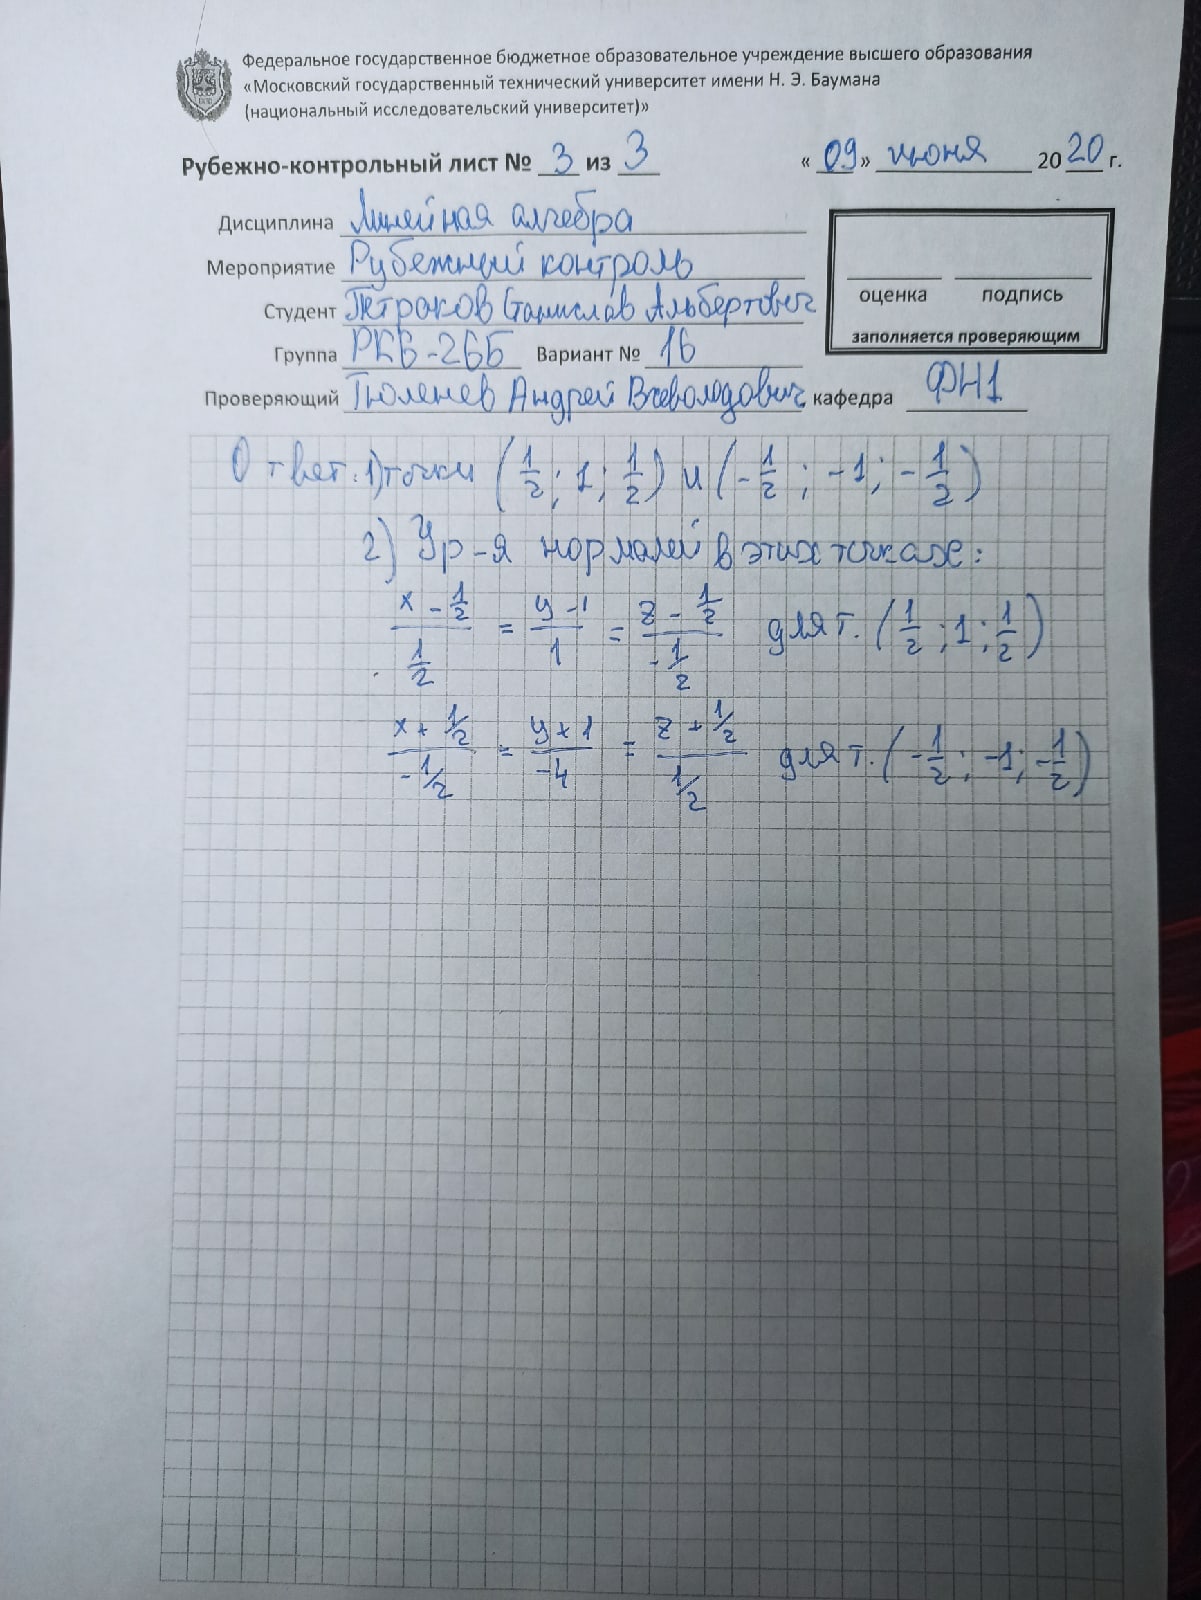 Федеральное государственное бюджетное образовательное учреждение высшего образования
«Московский государственный технический университет имени Н. Э. Баумана
(национальный исследовательский университет)»
Рубежно-контрольный лист № 3 из 3 «09» июня 2020 г.
Дисциплина Линейная алгебра
Мероприятие Рубежный контроль
Студент Петраков Станислав Альбертович
Группа РК6-26Б Вариант № 16
оценка подпись
заполняется проверяющим
Проверяющий Тюленев Андрей Всеволодович кафедра ФН1
Ответ: 1) точки (1/2; 1; 1/2) и (-1/2; -1; -1/2)
2) Ур-я нормалей в этих точках:
(x - 1/2)/(1/2) = (y - 1)/1 = (z - 1/2)/(-1/2) для т. (1/2; 1; 1/2)
(x + 1/2)/(-1/2) = (y + 1)/(-4) = (z + 1/2)/(1/2) для т. (-1/2; -1; -1/2)